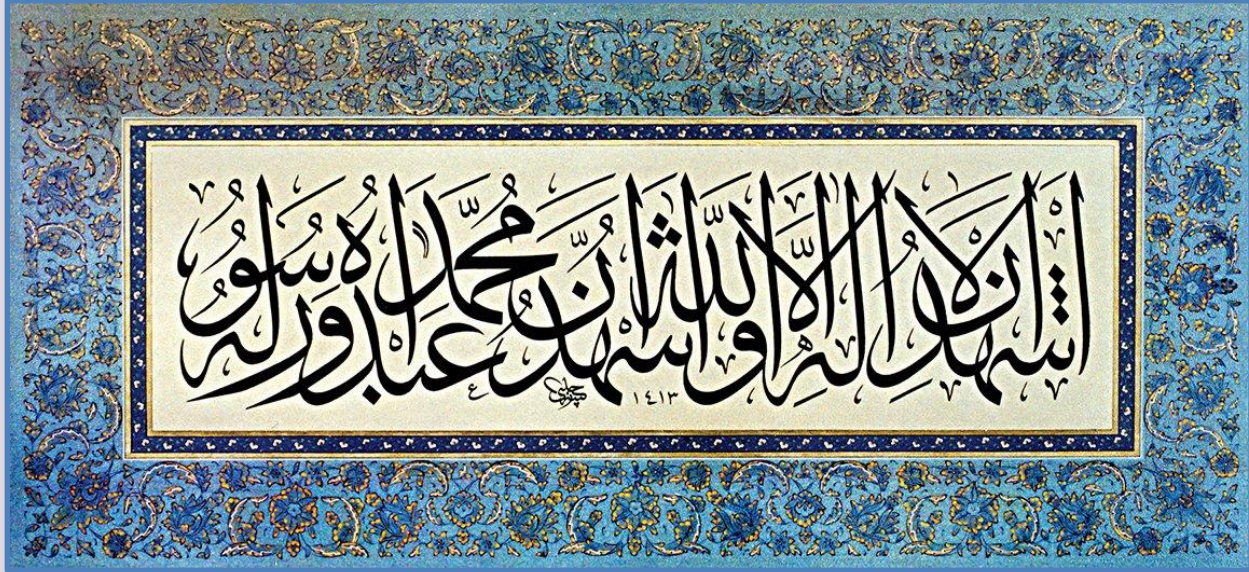 اشهد ان لا اله الا الله و اشهد ان محمدا عبده و رسوله
١٤١٣